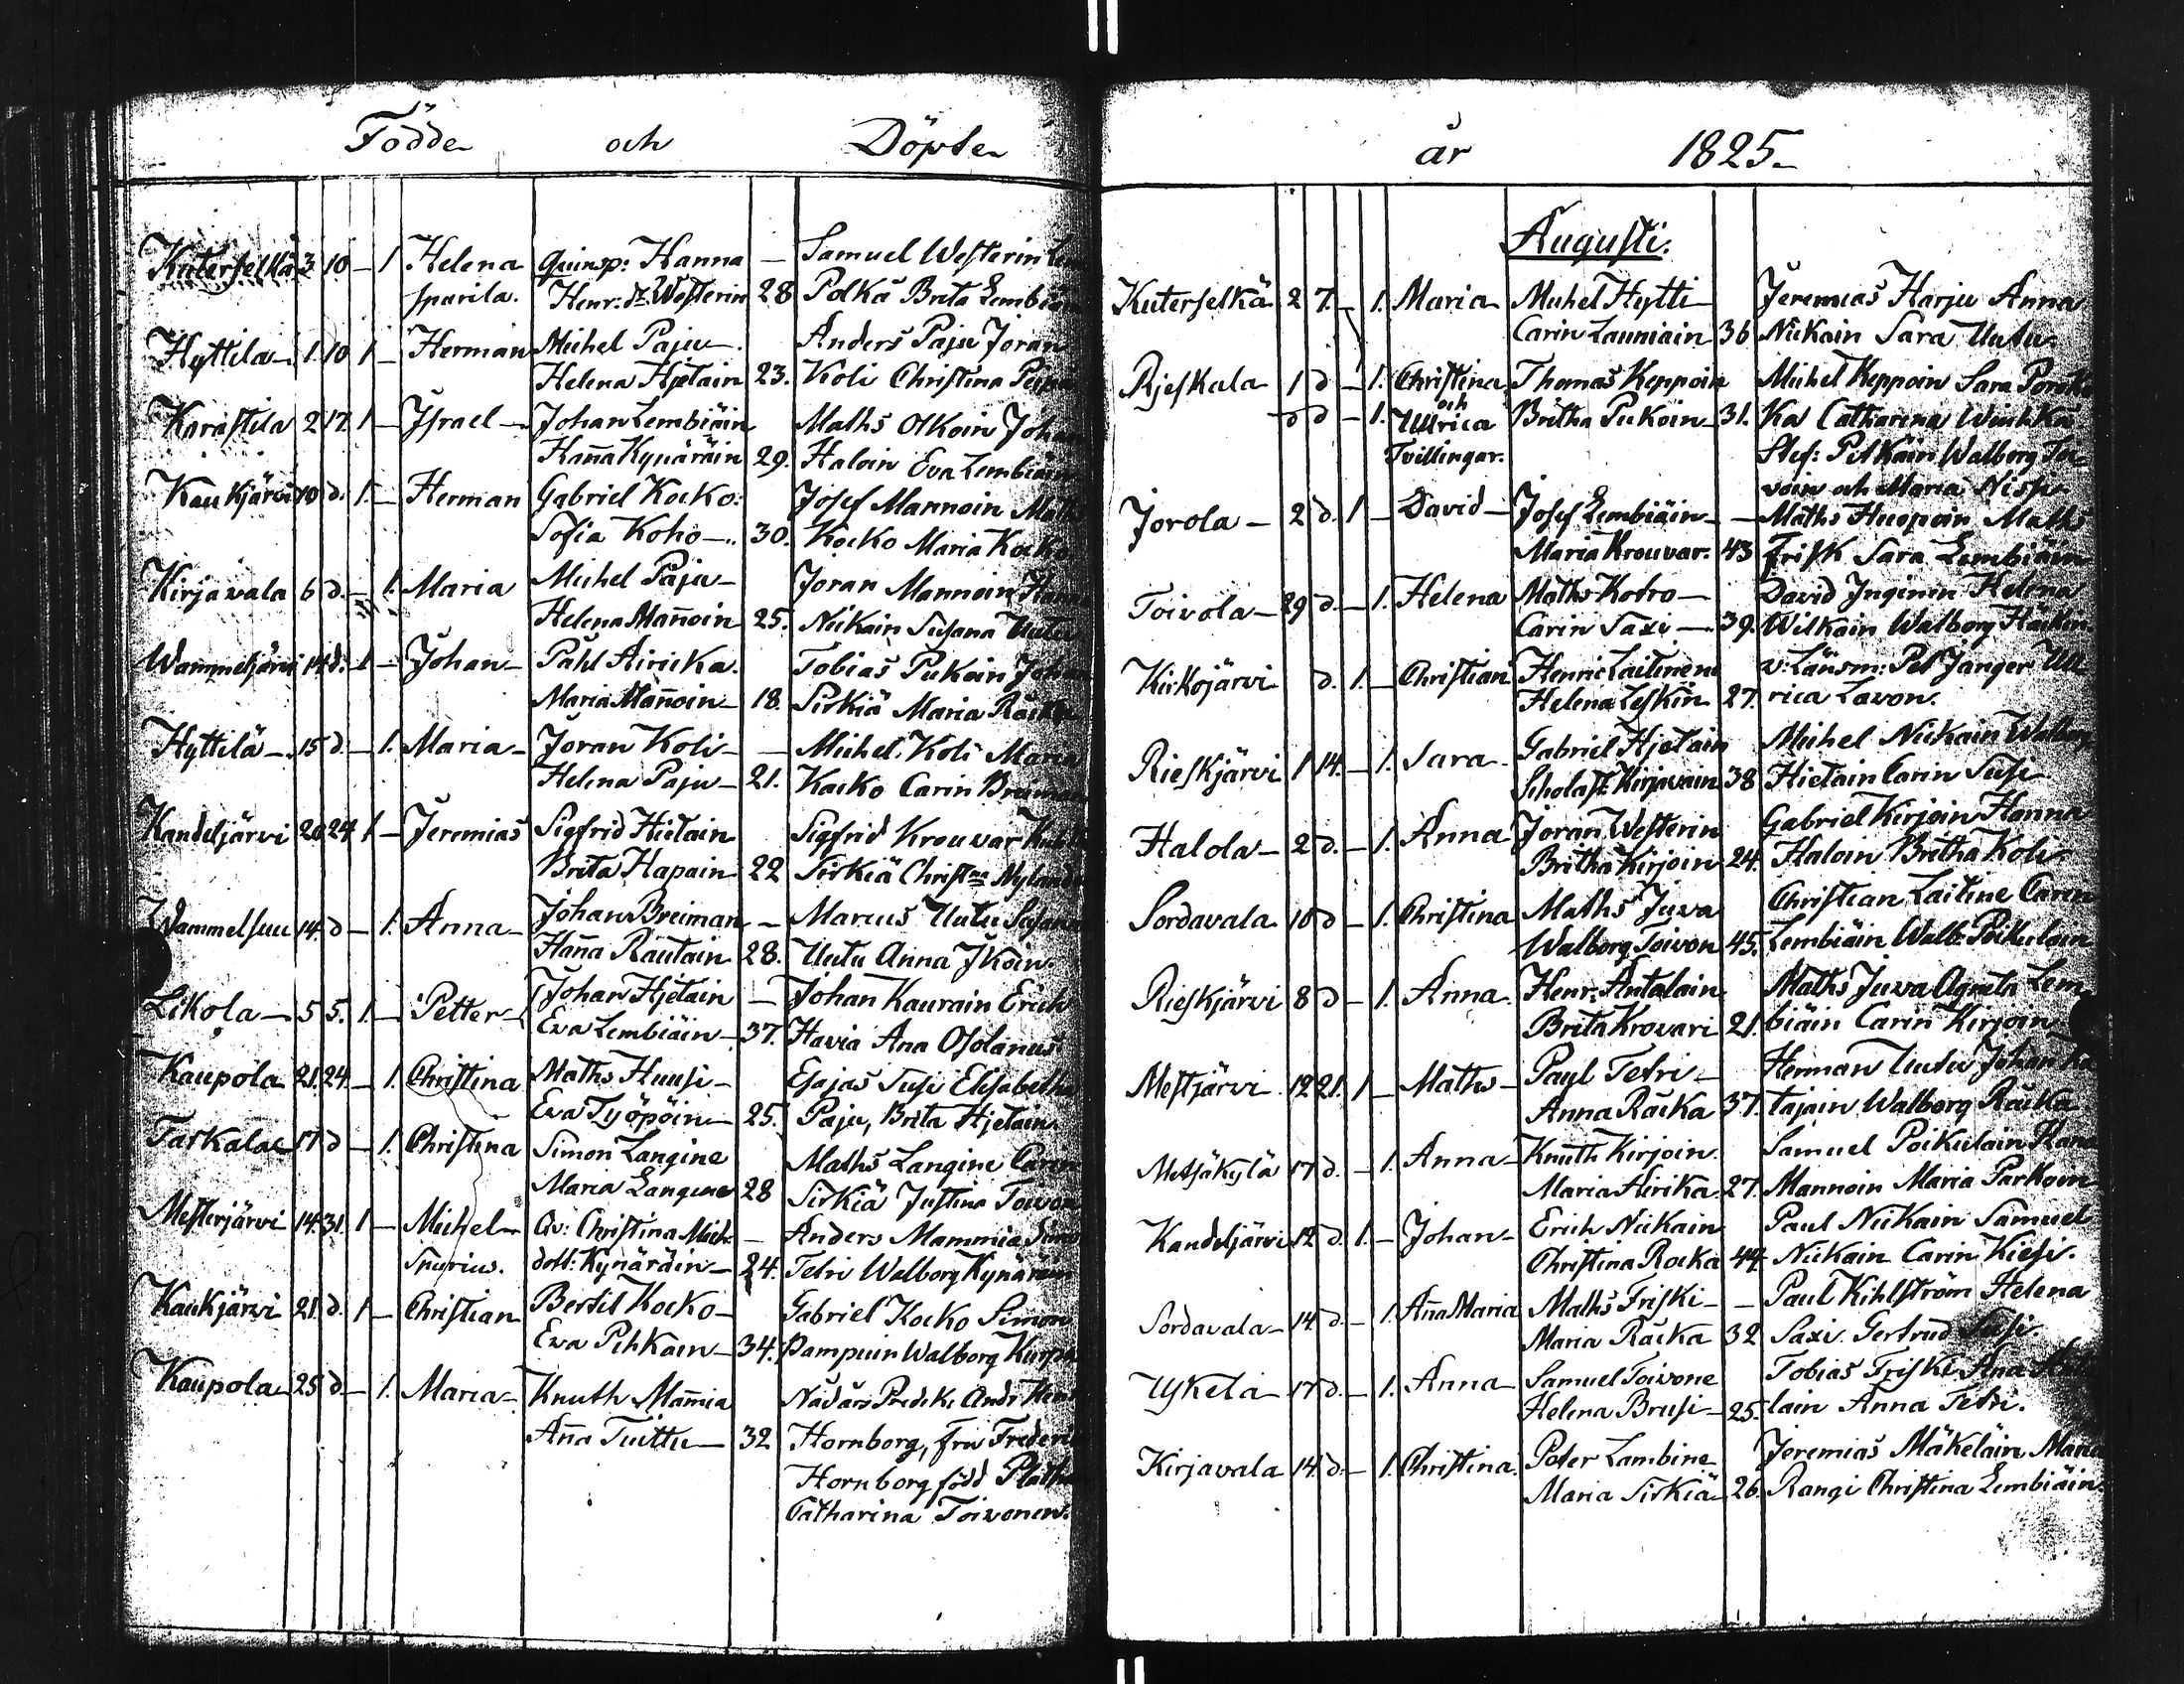 Födde och Döpte
Kuterselkä 3 10 – 1 Helena Qvinsp: Hanna – Samuel Westerin
spurila. Henr: dr Westerin 28 Polka Brita
Hyttilä – 1. 10 1 – Herman Michel Paju – Anders Paju Joran
Helena Hjetain 23. Koli Christina
Karastila 2 17. 1 – Jsrael – Johan Lembiäin Maths Olkoin Johan
Hañna Kynäräin 29. Haloin Eva Lembiäin
Kaukjärvi 10 d. 1. – Herman Gabriel Kocko. Josef Mannoin
Sofia Koho – 30. Kocko Maria Kocko
Kirjavala 6 d. – 1. Maria Michel Paju – Joran Mannoin
Helena Mañoin 25. Niikain Susana Uutu
Wammeljärvi 14 d. 1 – Johan – Påhl Airicka. Tobias Pukoin Johan
Maria Mañoin – 18. Sirkiä Maria
Hyttilä – 15 d – 1. Maria – Joran Koli – – Michel Koli Maria
Helena Paju – 21. Kocko Carin Breiman
Kandeljärvi 20 24 1 – Jeremias Sigfrid Hietain Sigfrid Krouvar
Brita Hapain 22 Sirkiä Christna
Wammelsuu 14. d – 1. Anna – Johan Breiman – Marcus Uutu Susan
Haña Rautain 28. Uutu Anna Jkoin.
Likola – 5 5. 1. – Petter – Johan Hjetain – Johan Kaurain Erich
Eva Lembiäin – 37. Havia Ana Osolanus
Kaupola 21. 24 – 1. Christina Maths Huusi – Esajas Susi Elisabetha
Eva Työpöin – 25. Paju, Brita Hjetain.
Tarkala 17 d – 1. Christina Simon Langine Maths Langine Carin
Maria Langine 28 Sirkiä Justina
Mesterjärvi 14. 31. 1 – Michel – Qv: Christina Mich – Anders Mammia
Spurius. dott: Kynäräin – 24. Tetri Walborg Kynäräin
Kaukjärvi 21. d. 1 – Christian Bertil Kocko – Gabriel Kocko Simon
Eva Pihkain – 34. Pampuin Walborg
Kaupola 25 d – 1. Maria – Knuth Mamia Nådårs Predik. Andr
Aña Tuittu – 32 Hornborg, fru
Hornborg född
Catharina Toivonen.
år 1825
Augusti.
Kuterselkä 2 7. – 1. Maria Michel Hytti – Jeremias Harju Anna
Carin Launiain 36 Niikain Sara Uutu
Rjeskala 1 d – 1. Christina Thomas Keppoin Michel Keppoin Sara
och
d d – 1. Ullrica Britha Pukoin 31. Catharina
Tvillingar. Stef: Pitkäin Walborg Toi
voin och Maria
Jorola – 2 d. 1 – David – Josef Lembiäin – – Maths Huopoin Maths
Maria Krouvar. 43 Frisk Sara Lembiäin
Toivola – 29 d. – 1. Helena Maths Kotro – David Inginen Helena
Carin Saxi – 39. Wilkain Walborg
Kirkojärvi d. 1. – Christian Henric Laitinen v: Länsm: Pet Janger Ull
Helena Leskin 27. rica Lavon.
Rieskjärvi 1 14. – 1. Sara. Gabriel Hjetain Michel Niikain Walborg
Scholast: Kirjavain 38 Hietain Carin Susi
Halola – 2 d. – 1. Anna Joran Westerin Gabriel Kirjoin Hanna
Britha Kirjoin 24. Haloin Britha Koli
Sordavala 10 d – 1. Christina Maths Juva Christian Laitine Carin
Walborg Toivon 45. Lembiäin Walb: Poikulain
Rieskjärvi 8 d – 1. Anna. Henr: Antalain Maths Juva Agneta Lem
Brita Krovari 21. biäin Carin Kirjoin
Mestjärvi 12 21. 1 – Maths – Paul Tetri – Herman Uutu Johan
Anna Räcka 37. tajain Walborg Räcka
Metsäkylä 17 d. – 1. Anna – Knuth Kirjoin. Samuel Poikulain
Maria Airika 27. Mannoin Maria Parkoin
Kandeljärvi 12 d. 1. – Johan – Erich Niikain Paul Niikain Samuel
Christina Rocka 44. Niikain Carin Kiesi.
Sordavala – 14 d. – 1. Aña Maria Maths Friski – – Paul Kihlström Helena
Maria Räcka 32 Saxi. Gertrud Susi.
Uskela – 17 d. – 1. Anna – Samuel Toivone Tobias Friski Ana
Helena Brusi – 25. lain Anna Tetri.
Kirjavala 14. d. – 1. Christina. Peter Lambine Jeremias Mäkeläin Maria
Maria Sirkiä 26. Rangi Christina Lembiäin.